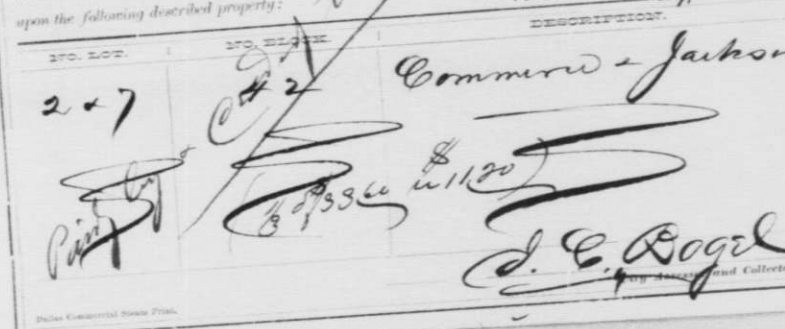 upon the following described property:
NO. LOT. NO. BLOCK. DESCRIPTION.
2 & 7 42 Commerce & Jackso
1/3 of 33.60 is $11.20
J. C. Bogel
City Assessor and Collecto
Dallas Commercial Steam Print.